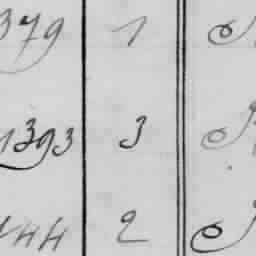 379 1
1393 3
144 2